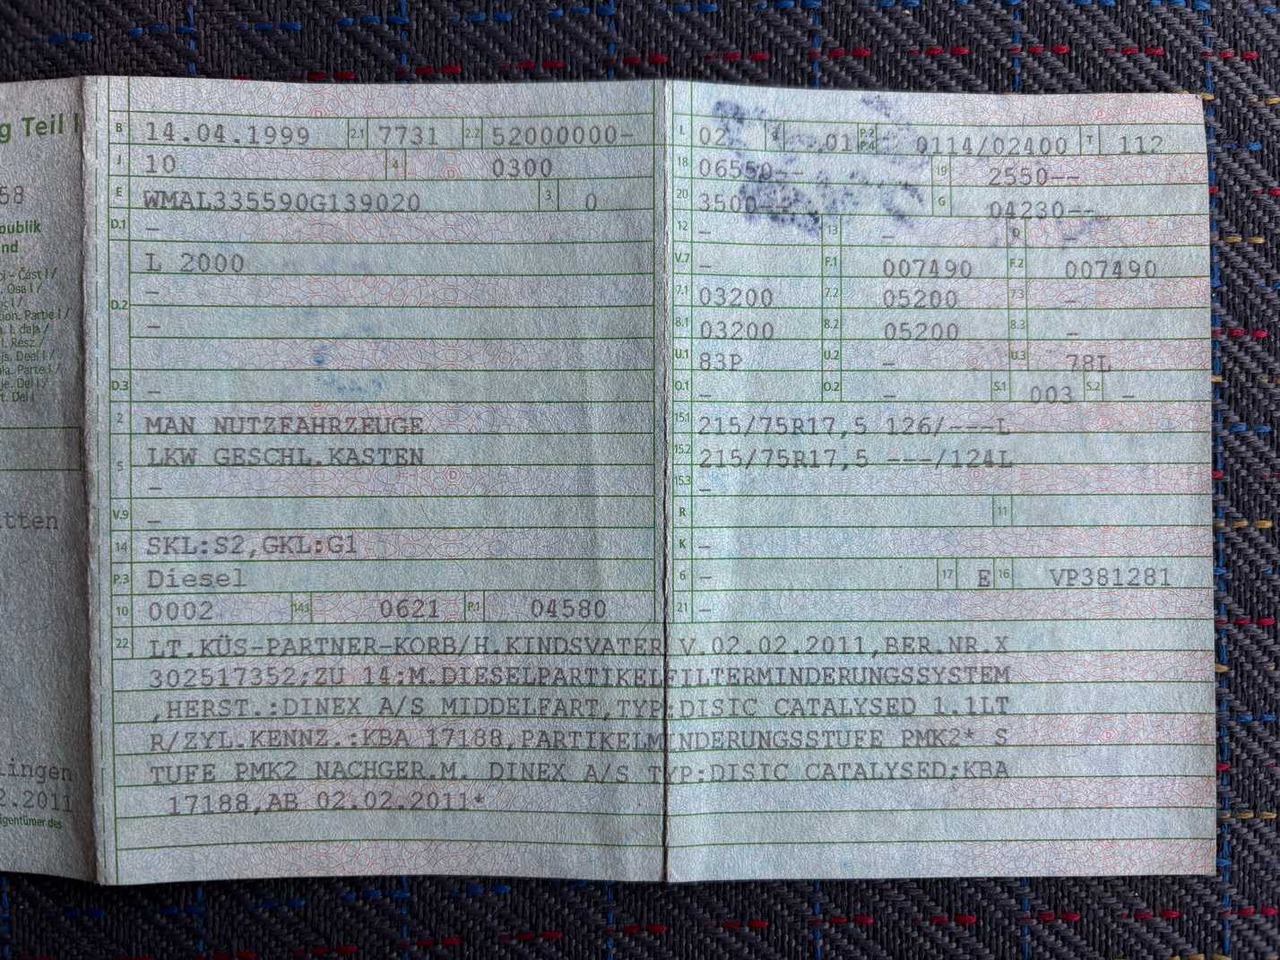 g Teil I
58
publik
nd
B 14.04.1999 2.1 7731 2.2 52000000-
J 10 4 0300
E WMAL335590G139020 3 0
D.1 -
L 2000
D.2 -
-
D.3 -
2 MAN NUTZFAHRZEUGE
5 LKW GESCHL.KASTEN
-
V.9 -
14 SKL:S2,GKL:G1
P.3 Diesel
10 0002 14.1 0621 P.1 04580
L 02 01 P.2 P.4 0114/02400 T 112
18 06550-- 19 2550--
20 3500-- G 04230--
12 - 13 - Q -
V.7 - F.1 007490 F.2 007490
7.1 03200 7.2 05200 7.3 -
8.1 03200 8.2 05200 8.3 -
U.1 83P U.2 - U.3 78L
O.1 - O.2 - S.1 003 S.2 -
15.1 215/75R17,5 126/---L
15.2 215/75R17,5 ---/124L
15.3 -
R 11
K -
6 - 17 E 16 VP381281
21 -
22 LT.KÜS-PARTNER-KORB/H.KINDSVATER V.02.02.2011,BER.NR.X
302517352;ZU 14:M.DIESELPARTIKELFILTERMINDERUNGSSYSTEM
,HERST.:DINEX A/S MIDDELFART,TYP:DISIC CATALYSED 1.1LT
R/ZYL.KENNZ.:KBA 17188,PARTIKELMINDERUNGSSTUFE PMK2* S
TUFE PMK2 NACHGER.M. DINEX A/S TYP:DISIC CATALYSED;KBA
17188,AB 02.02.2011*
itten
lingen
2.2011